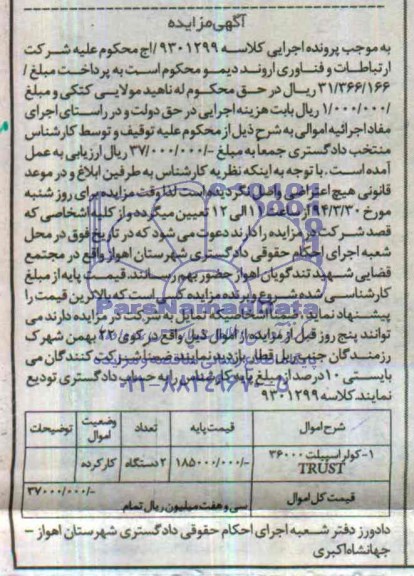 آگهی مزایده
به موجب پرونده اجرایی کلاسه ۹۳۰۱۲۹۹/اج محکوم علیه شرکت
ارتباطات و فناوری اروند دیمو محکوم است به پرداخت مبلغ/
۳۱/۳۶۶/۱۶۶ ریال در حق محکوم له ناهید مولایی کتکی و مبلغ
/۱/۰۰۰/۰۰۰ ریال بابت هزینه اجرایی در حق دولت و در راستای اجرای
مفاد اجرائیه اموالی به شرح ذیل از محکوم علیه توقیف و توسط کارشناس
منتخب دادگستری جمعاً به مبلغ -/۳۷/۰۰۰/۰۰۰ ریال ارزیابی به عمل
آمده است. با توجه به اینکه نظریه کارشناس به طرفین ابلاغ و در موعد
قانونی هیچ اعتراضی واصل نگردیده است لذا وقت مزایده برای روز شنبه
مورخ ۹۴/۳/۳۰ از ساعت ۱۱ الی ۱۲ تعیین میگردد و از کلیه اشخاصی که
قصد شرکت در مزایده را دارند دعوت می شود که در تاریخ فوق در محل
شعبه اجرای احکام حقوقی دادگستری شهرستان اهواز واقع در مجتمع
قضایی شهید تندگویان اهواز حضور بهم رسانند. قیمت پایه از مبلغ
کارشناسی شده شروع و برنده مزایده کسی است که بالاترین قیمت را
پیشنهاد نماید. ضمناً اشخاصیکه تمایل به شرکت در مزایده دارند می
توانند پنج روز قبل از مزایده از اموال ذیل واقع در کوی ۲۲ بهمن شهرک
رزمندگان جنب ریل قطار بازدید نمایند. ضمناً شرکت کنندگان می
بایستی ۱۰درصد از مبلغ پایه کارشناس را به حساب دادگستری تودیع
نمایند.کلاسه ۹۳۰۱۲۹۹
ParsNamadData
۰۲۱-۸۸۳۴۹۶۷۰
شرح اموال قیمت پایه تعداد وضعیت اموال توضیحات
۱- کولر اسپیلت ۳۶۰۰۰ TRUST ۱۸۵۰۰۰/۰۰۰/- ۲دستگاه کارکرده
قیمت کل اموال سی و هفت میلیون ریال تمام ۳۷۰۰۰/۰۰۰/-
دادورز دفتر شعبه اجرای احکام حقوقی دادگستری شهرستان اهواز –
جهانشاه اکبری